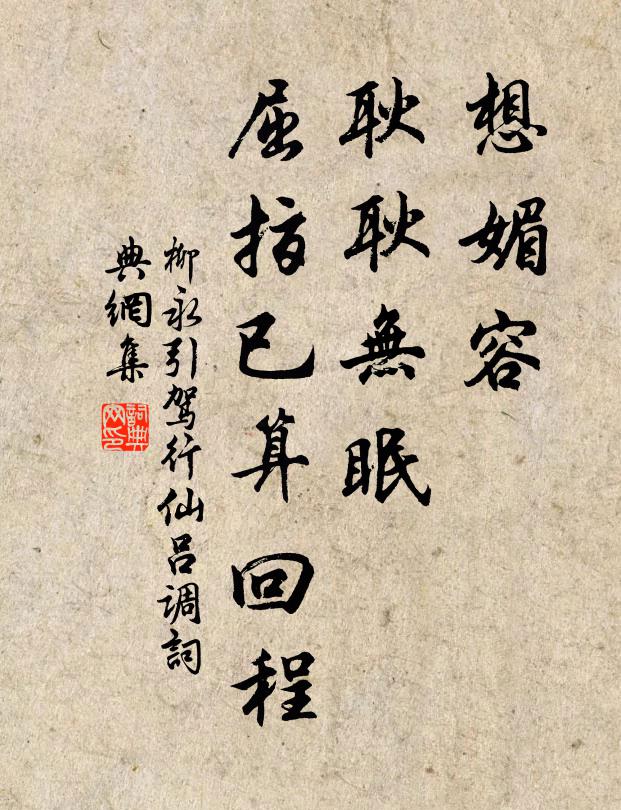 想媚容
耿耿無眠
屈指已算回程
柳永引駕行仙呂调詞
典網集
詞典网印